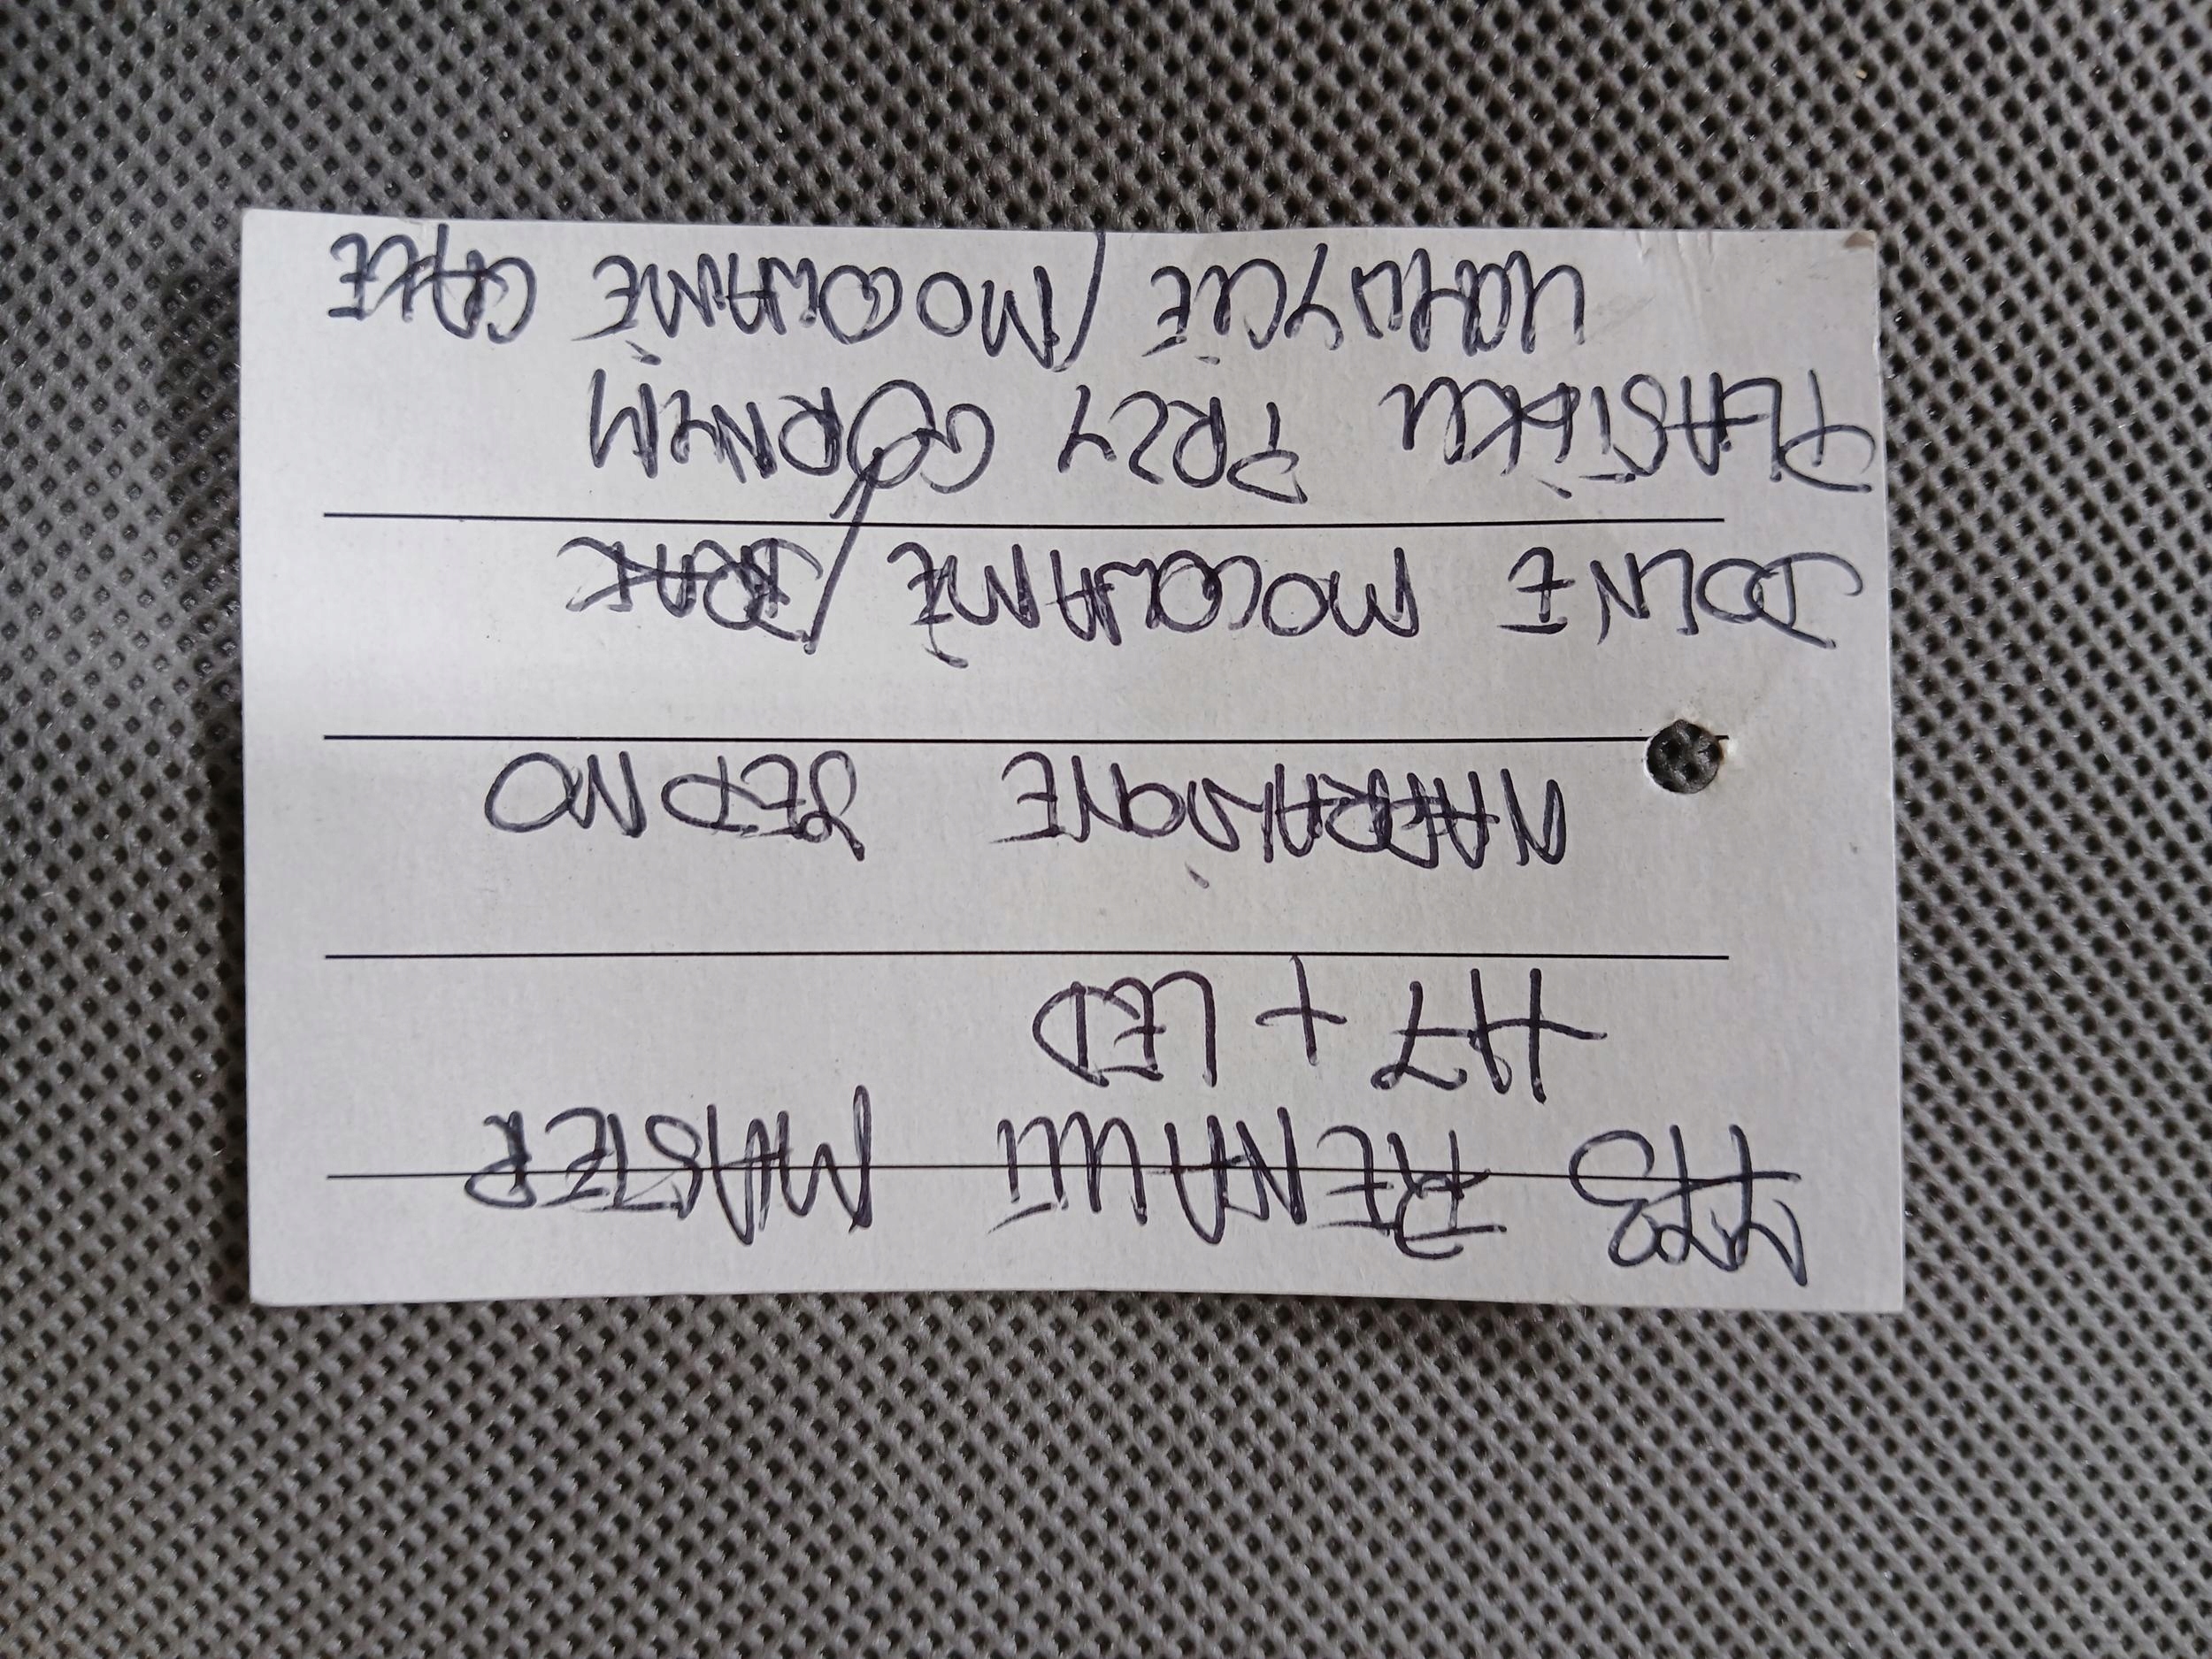 RENAULT MASTER
H7 + LED
NAPRAWIONE JEDNO
DOLNE MOCOWANIE / BRAK
PLASTIKU PRZY GÓRNYM
UCHWYCIE / MOCOWANIE CAŁE